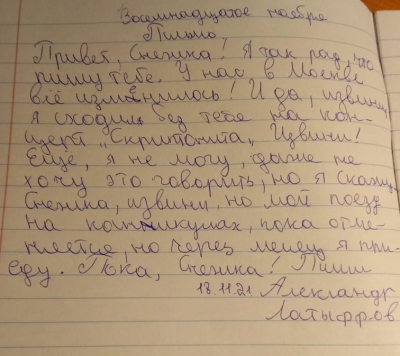 Восемнадцатое ноября
Письмо.
Привет, Снежка! Я так рад, что
пишу тебе. У нас в Москве
всё изменилось! И да, извини,
я сходил без тебя на кон-
церт „Скриптонита„ Извини!
Ещё, я не могу, даже не
хочу это говорить, но я скажу,
Снежка, извини, но мой поезд
на каникулах, пока отме-
няется, но через месец я при-
еду. Пока, Снежка! Пиши
18.11.21 Александр
Латыфров